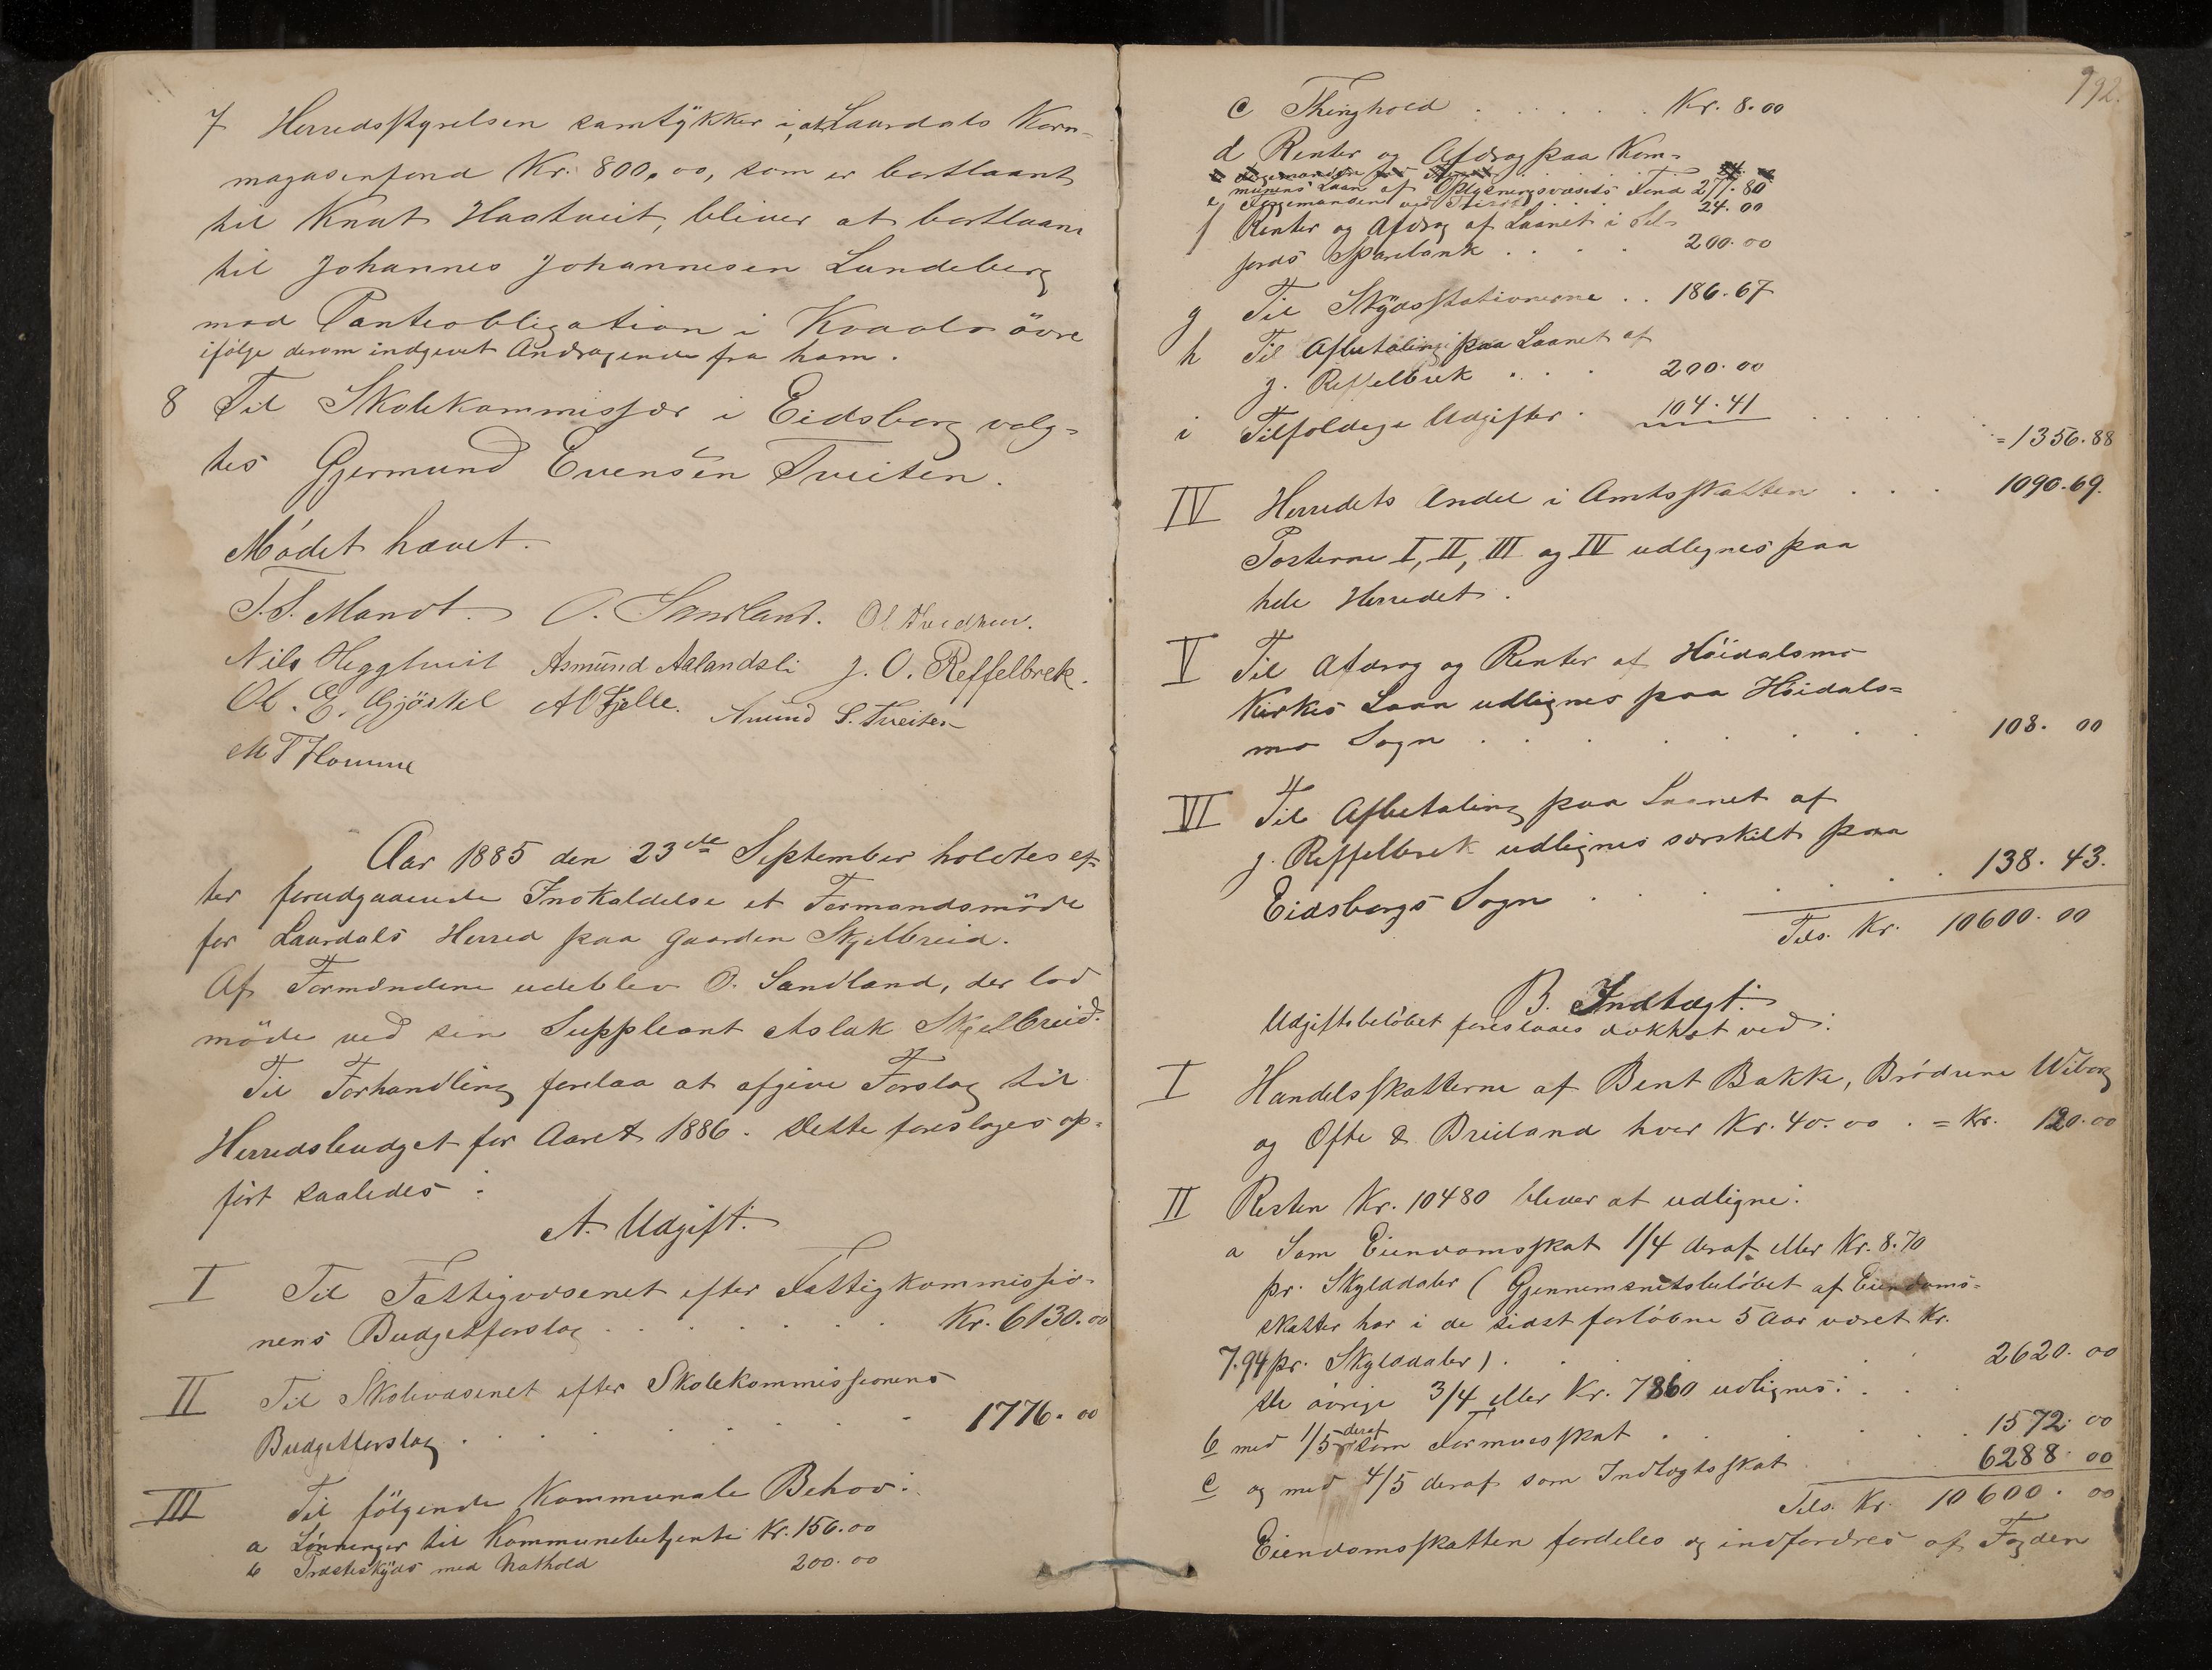 7 Herredsstyrelsen samtykker i, at Laurdals Korn-
magasinfond Kr. 800,00, som er bortlaant
til Knut Haatveit, bliver at bortlaane
til Johannes Johannesen Lundeberg
mod Panteobligation i Kvaale övre
ifölge derom indgivet Andragende fra ham.
8 Til Skolekommissær i Eidsborg valg-
tes Gjermund Evensen Tveiten.
Mödet hævet.
T. S. Mandt. O. Sandland.
Nils Heggtveit Asmund Aalandsli J. O. Reffelbrek.
Ol. E. Gjöstil A O Fjelle. Anund S. Tveiten
M T Homme
Aar 1885 den 23de September holdtes ef-
ter forudgaaende Indkaldelse et Formandsmöde
for Laurdals Herred paa Gaarden Skjelbreid.
Af Formændene udeblev O. Sandland, der lod
möde ved sin Suppleant Aslak Skjelbreid.
Til Forhandling forelaa at afgive Forslag til
Herredsbudget for Aaret 1886. Dette foreslages op-
fört saaledes:
A. Udgift.
I Til Fattigvæsenet efter Fattigkommissio-
nens Budgetforslag . . . . . . Kr. 6130.00
II Til Skolevæsenet efter Skolekommissionens
Budgetforslag . . . . . . . 1776.00
III Til fölgende Kommunale Behov:
a Lönninger til Kommunebetjente Kr. 156.00
b Præsteskyds med Nathold 200.00
192.
c Thinghold . . . . . Kr. 8.00
d Renter og Afdrag paa Kom-
munens Laan af Oplysningsvæsenets Fond 277.80
e Læggemanden ved 24.00
f Renter og Afdrag af Laanet i Sel-
jords Sparebank . . . . 200.00
g Til Skydsstationerne . . 186.67
h Til Afbetaling paa Laanet af
J. Reffelbrek . . . 200.00
i Tilfældige Udgifter . 104.41 . . . . = 1356.88
IV Herredets Andel i Amtsskatten . . . 1090.69.
Posterne I, II, III og IV udlignes paa
hele Herredet.
V Til Afdrag og Renter af Höidalsmo
Kirkes Laan udlignes paa Höidals-
mo Sogn . . . . . . . 108. 00
VI Til Afbetaling paa Laanet af
J. Reffelbrek udlignes særskilt paa
Eidsborgs Sogn . . . . . 138. 43.
Tils. Kr. 10600.00
B. Indtægt.
Udgiftsbelöbet foreslaaes dækket ved:
I Handelsskatterne af Bent Bakke, Brödrene Wiborg
og Ofte & Breiland hver Kr. 40.00 . = Kr. 120.00
II Resten Kr. 10480 bliver at udligne:
a Som Eiendomsskat 1/4 deraf eller Kr. 8.70
pr. Skylddaler (Gjennemsnitsbelöbet af Eiendoms-
skatter har i de sidst forlöbne 5 Aar været Kr.
7.94 pr. Skylddaler) . . . . . 2620.00
De övrige 3/4 eller Kr. 7860 udlignes: . .
b med 1/5 deraf som Formuesskat . . . . 1572.00
c og med 4/5 deraf som Indtægtsskat . . 6288.00
Tils. Kr. 10600.00
Eiendomsskatten fordeles og indfordres af Fogden